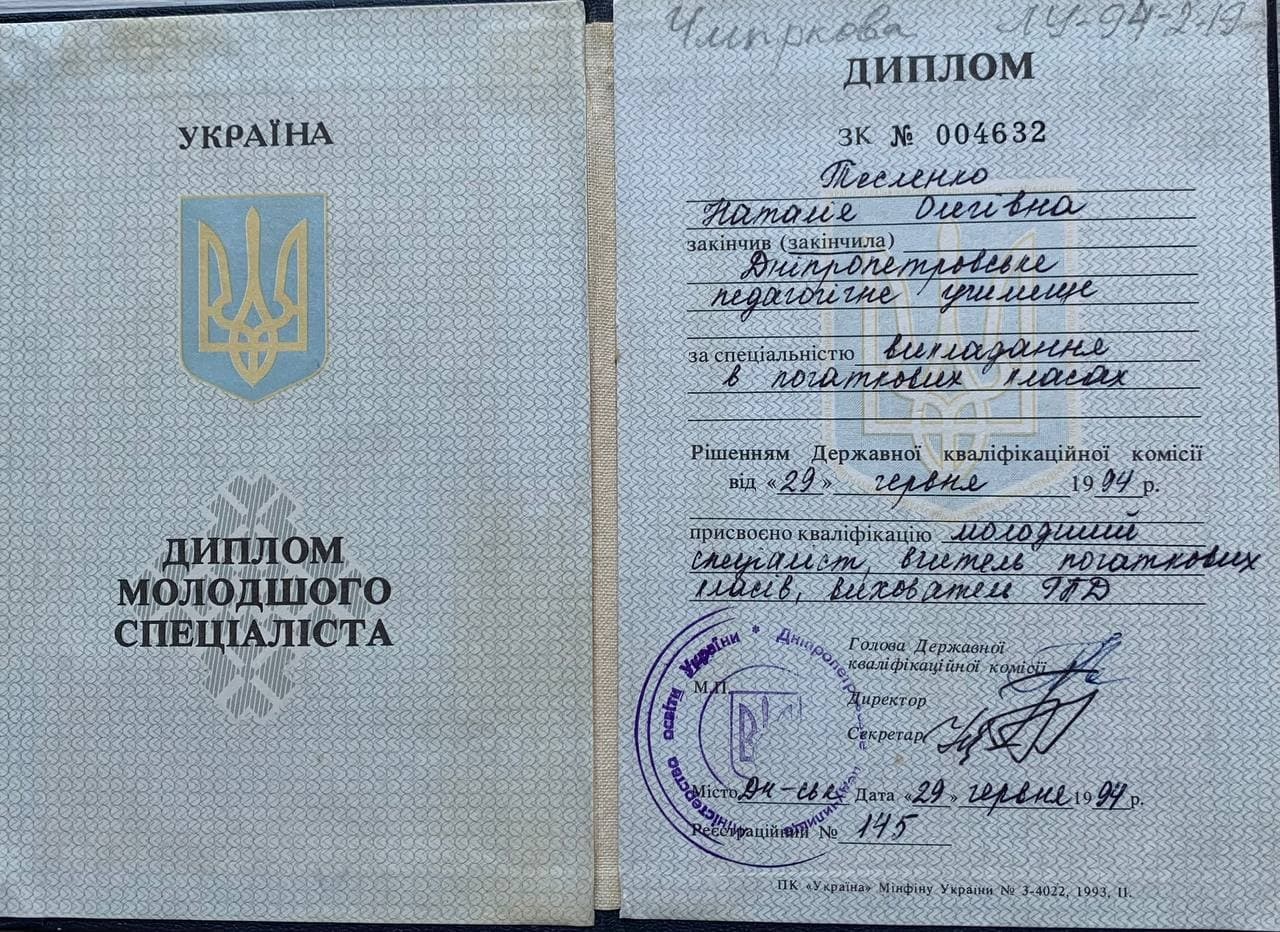 УКРАЇНА
ДИПЛОМ
МОЛОДШОГО
СПЕЦІАЛІСТА
ЛУ-94-2-19
ДИПЛОМ
ЗК № 004632
Тесленко
Наталія Олегівна
закінчив (закінчила)
Дніпропетровське
педагогічне училище
за спеціальністю викладання
в початкових класах
Рішенням Державної кваліфікаційної комісії
від «29» червня 1994 р.
присвоєно кваліфікацію молодший
спеціаліст, вчитель початкових
класів, вихователь ГПД
Голова Державної
кваліфікаційної комісії
М.П.
Директор
Секретар
Міністерство освіти України * Дніпропетровське педучилище
Місто Дн-ськ Дата «29» червня 1994 р.
Реєстраційний № 145
ПК «Україна» Мінфіну України № 3-4022, 1993, II.